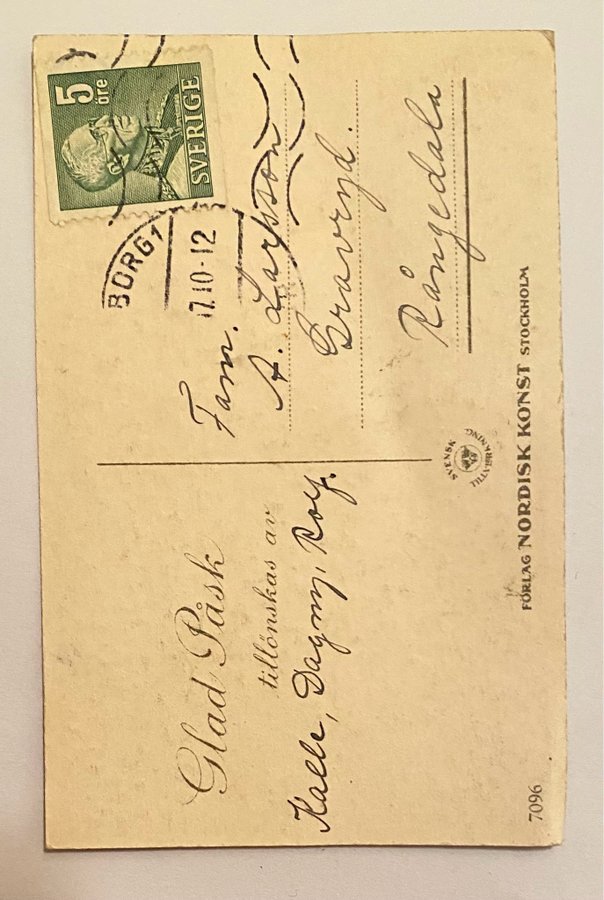 Glad Påsk
tillönskas av
Kalle, Dagny, Rolf.
5
öre
SVERIGE
BORG1
17.10-12
Fam.
A. Larsson
Gravryd.
Rångedala
SVENSK
TILLVERKNING
7096
FÖRLAG NORDISK KONST STOCKHOLM